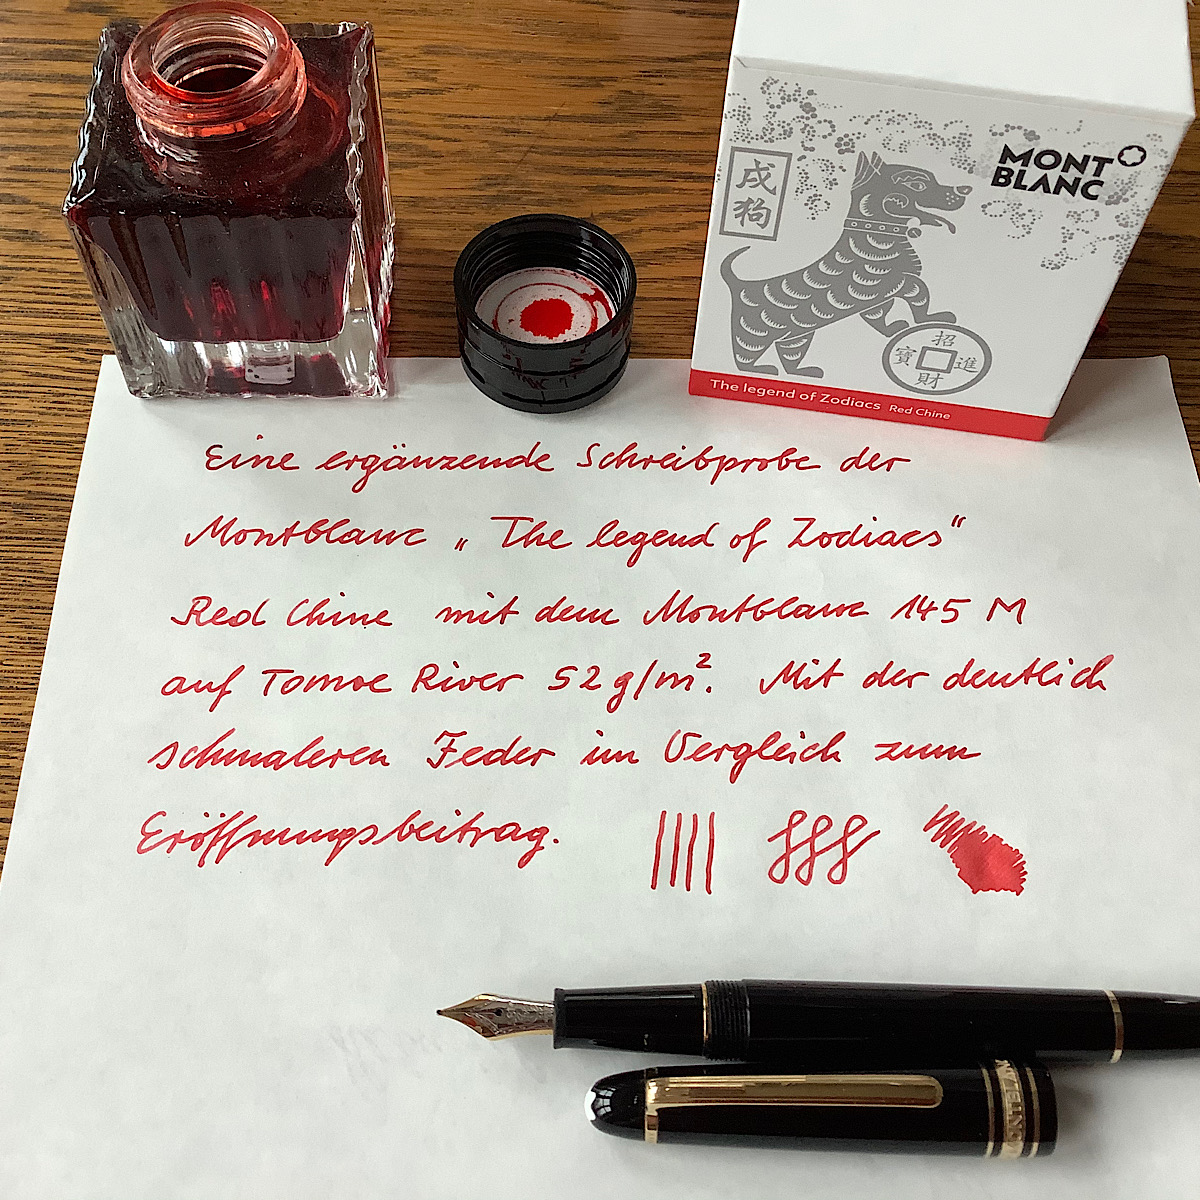 MONT
BLANC
戌
狗
招
寶 進
財
The legend of Zodiacs Red Chine
Eine ergänzende Schreibprobe der
Montblanc „The legend of Zodiacs“
Red Chine mit dem Montblanc 145 M
auf Tomoe River 52 g/m². Mit der deutlich
schmaleren Feder im Vergleich zum
Eröffnungsbeitrag.